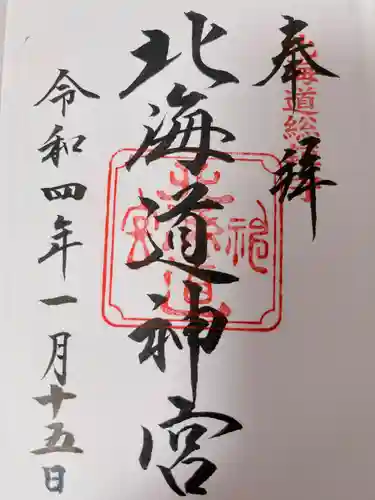 奉拝
北海道総鎮守
北海道神宮
令和四年一月十五日